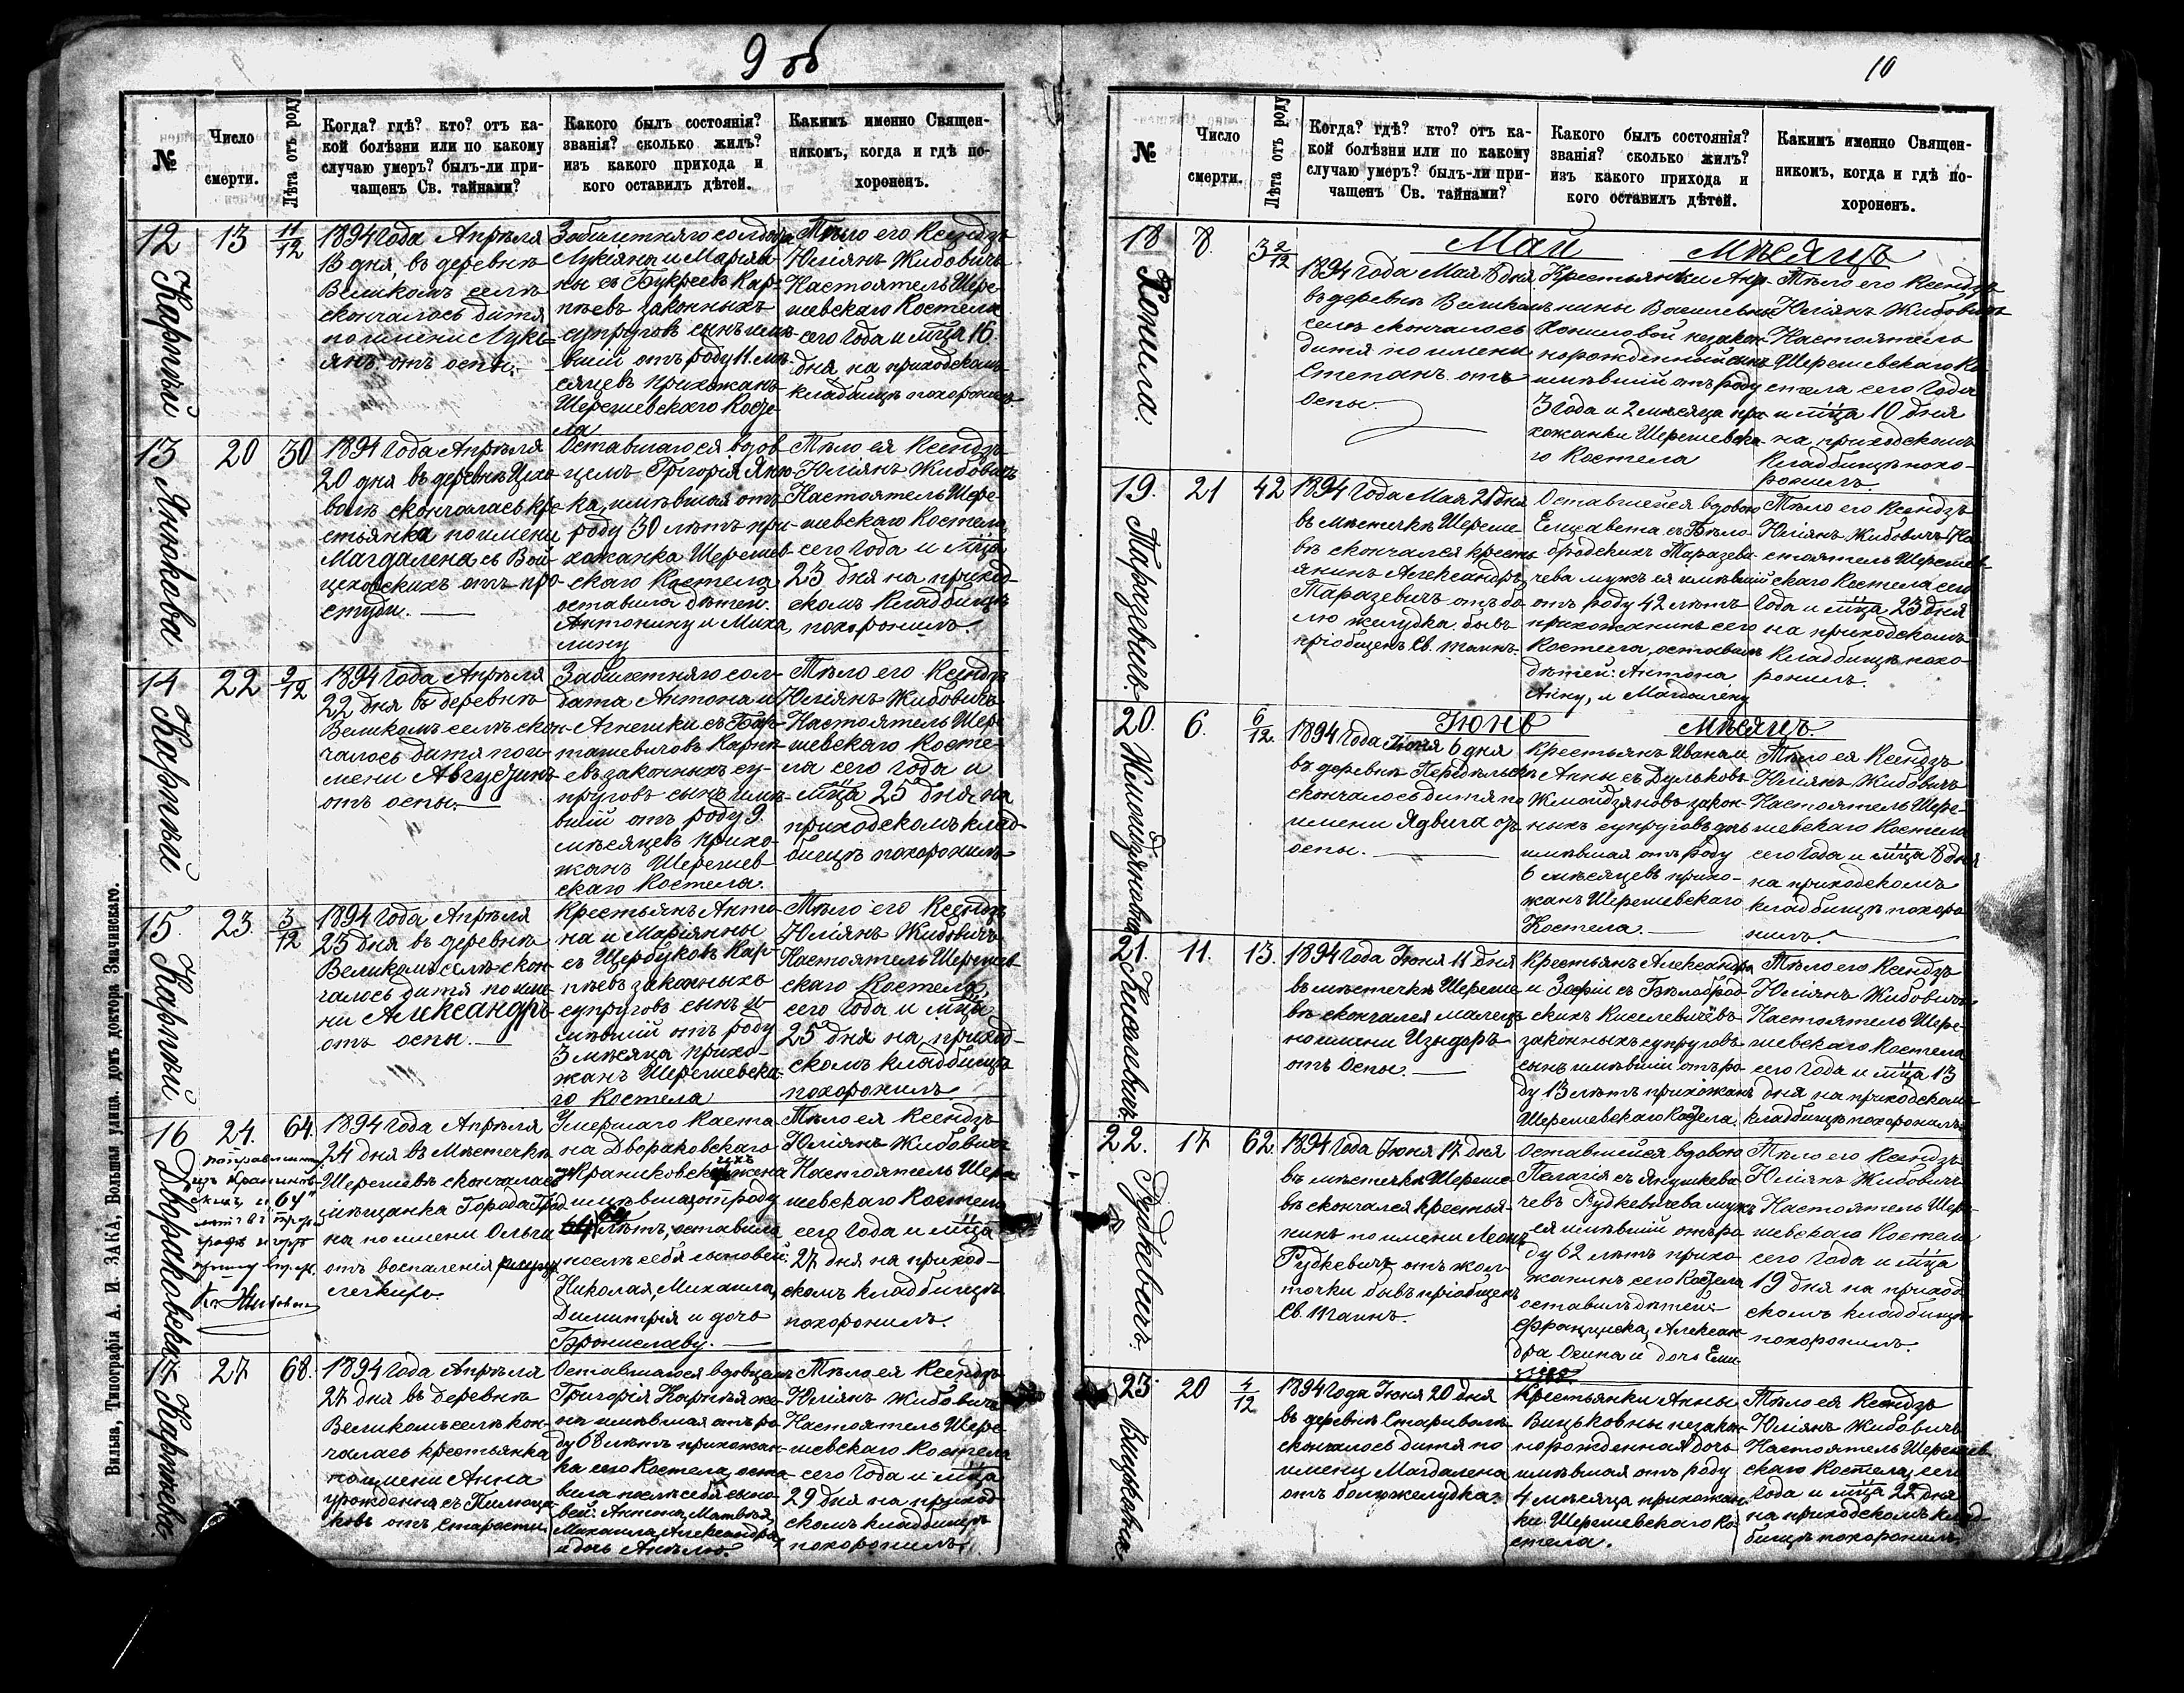 9 об
№
Число
смерти.
Лѣта отъ роду
Когда? гдѣ? кто? отъ ка-
кой болѣзни или по какому
случаю умеръ? былъ-ли при-
чащенъ Св. тайнами?
Какого былъ состоянія?
званія? сколько жилъ?
изъ какого прихода и
кого оставилъ дѣтей.
Каким​ъ именно Священ-
никомъ, когда и гдѣ по-
хороненъ.
12
Карпѣй
13
11/12
1894 года Апрѣля
13 дня, въ деревнѣ
Великомъ селѣ
скончалось дитя
по имени Лукі-
янъ отъ оспы.
Забилетняго солдата
Лукіяна и Маріян-
ны съ Букреевъ Кар-
пѣевъ законныхъ
супруговъ сынъ имѣ-
вшій отъ роду 11 мѣ-
сяцевъ прихожанъ
Шерешевскаго Косте-
ла
Тѣло его Ксендзъ
Юліянъ Жибовичъ
Настоятель Шере-
шевскаго Костела
сего года и мѣсяца 16
дня на приходскомъ
кладбищѣ похоронилъ
13
Янюкова
20
30
1894 года Апрѣля
20 дня въ деревнѣ
скончалась кре-
стьянка по имени
Магдалена съ Вой-
цеховскихъ отъ про-
студы.
Оставшагося вдов-
цемъ Григорія Яню-
ка, имѣвшая отъ
роду 30 лѣтъ при-
хожанка Шерешев-
скаго Костела
оставила дѣтей:
Антонину и Миха-
лину
Тѣло ея Ксендзъ
Юліянъ Жибовичъ
Настоятель Шере-
шевскаго Костела
сего года и мѣсяца
23 дня на приход-
скомъ кладбищѣ
похоронилъ.
14
Карпѣй
22
9/12
1894 года Апрѣля
22 дня въ деревнѣ
Великомъ селѣ скон-
чалось дитя по и-
мени Августинъ
отъ оспы.
Забилетняго сол-
дата Антона и
Агнешки съ Бар-
ташевичовъ Карпѣ-
евъ законныхъ су-
пруговъ сынъ имѣ-
вшій отъ роду 9
мѣсяцевъ прихо-
жанъ Шерешев-
скаго Костела.
Тѣло его Ксендзъ
Юліянъ Жибовичъ
Настоятель Шере-
шевскаго Косте-
ла сего года и
мѣсяца 25 дня на
приходскомъ клад-
бищѣ похоронилъ
15
Карпѣй
23.
3/12
1894 года Апрѣля
23 дня въ деревнѣ
Великомъ селѣ скон-
чалось дитя по име-
ни Александръ
отъ оспы.
Крестьянъ Анто-
на и Маріянны
съ Щербуковъ Кар-
пѣевъ законныхъ
супруговъ сынъ и-
мѣвшій отъ роду
3 мѣсяца прихо-
жанъ Шерешевска-
го Костела
Тѣло его Ксендзъ
Юліянъ Жибовичъ
Настоятель Шерешев-
скаго Костела
сего года и мѣсяца
25 дня на приход-
скомъ кладбищѣ
похоронилъ
16
Двораковская
24.
64.
1894 года Апрѣля
24 дня въ Мѣстечкѣ
Шерешевѣ скончалась
мѣщанка Города
по имени Ольга
отъ воспаленія
легкихъ.
Умершаго Каета-
на Двораковскаго
жена
имѣвшая отъ роду
лѣтъ, оставила
послѣ себя сыновей:
Николая, Михаила,
Димитрія и дочь
Брониславу.
Тѣло ея Ксендзъ
Юліянъ Жибовичъ
Настоятель Шере-
шевскаго Костела
сего года и мѣсяца
27 дня на приход-
скомъ кладбищѣ
похоронилъ.
17
Карпѣева
27
68.
1894 года Апрѣля
27 дня въ деревнѣ
Великомъ селѣ скон-
чалась крестьянка
по имени Анна
урожденна съ
отъ старости.
Оставшагося вдовцемъ
Григорія Карпѣя же-
на имѣвшая отъ ро-
ду 68 лѣтъ прихожан-
ка сего Костела, оста-
вила послѣ себя сыно-
вей: Антона, Матвѣя,
Михаила, Александра,
и дочь Анѣлю.
Тѣло ея Ксендзъ
Юліянъ Жибовичъ
Настоятель Шере-
шевскаго Костела
сего года и мѣсяца
29 дня на приход-
скомъ кладбищѣ
похоронилъ.
Вильна, Типографія А. И. ЗАКА, Большая улица, домъ доктора Значинскаго.
10
№
Число
смерти.
Лѣта отъ роду
Когда? гдѣ? кто? отъ ка-
кой болѣзни или по какому
случаю умеръ? былъ-ли при-
чащенъ Св. тайнами?
Какого былъ состоянія?
званія? сколько жилъ?
изъ какого прихода и
кого оставилъ дѣтей.
Какимъ именно Священ-
никомъ, когда и гдѣ по-
хороненъ.
Май Мѣсяцъ
18
Копила.
8.
3 2/12
1894 года Мая 8 дня
въ деревнѣ Великомъ
селѣ скончалось
дитя по имени
Степанъ отъ
оспы.
Крестьянки Анто-
нины Васильевны
Копиловой незакон-
норожденный сынъ
имѣвшій отъ роду
3 года и 2 мѣсяца при-
хожанки Шерешевска-
го Костела
Тѣло его Ксендзъ
Юліянъ Жибовичъ
Настоятель
Шерешевскаго Ко-
стела сего года
и мѣсяца 10 дня
на приходскомъ
кладбищѣ похо-
ронилъ.
19.
Таразевичъ.
21
42
1894 года Мая 21 дня
въ мѣстечкѣ Шереше-
вѣ скончался кресть-
янинъ Александръ
Таразевичъ отъ бо-
лю желудка бывъ
пріобщенъ Св. таинъ.
Оставшейся вдовою
Елисавета съ Бѣло-
бродскихъ Таразеви-
чева мужъ ея имѣвшій
отъ роду 42 лѣтъ
прихожанинъ сего
Костела, оставилъ
дѣтей: Антона,
Анну, и Магдалену
Тѣло его Ксендзъ
Юліянъ Жибовичъ На-
стоятель Шерешев-
скаго Костела сего
года и мѣсяца 23 дня
на приходскомъ
кладбищѣ похо-
ронилъ.
Іюнь Мѣсяцъ.
20.
Жмойдзяновна
6.
6/12.
1894 года Іюня 6 дня
въ деревнѣ Передѣльскѣ
скончалось дитя по
имени Ядвига отъ
оспы.
Крестьянъ Ивана и
Анны съ Дульковъ
Жмойдзяновъ закон-
ныхъ супруговъ дочь
имѣвшая отъ роду
6 мѣсяцевъ прихо-
жанъ Шерешевскаго
Костела.
Тѣло ея Ксендзъ
Юліянъ Жибовичъ
Настоятель Шере-
шевскаго Костела
сего года и мѣсяца 8 дня
на приходскомъ
кладбищѣ похоро-
нилъ.
21.
Киселевичъ
11.
13.
1894 года Іюня 11 дня
въ мѣстечкѣ Шереше-
вѣ скончался малецъ
по имени Изыдоръ
отъ оспы.
Крестьянъ Александра
и Зофіи съ Бѣлоброд-
скихъ Киселевичёвъ
законныхъ супруговъ
сынъ имѣвшій отъ ро-
ду 13 лѣтъ прихожанъ
Шерешевскаго Костела.
Тѣло его Ксендзъ
Юліянъ Жибовичъ
Настоятель Шере-
шевскаго Костела
сего года и мѣсяца 13
дня на приходскомъ
кладбищѣ похоронилъ
22.
Рудкевичъ.
17
62.
1894 года Іюня 17 дня
въ мѣстечкѣ Шереше-
вѣ скончался крестья-
нинъ по имени Леонъ
Рудкевичъ отъ жол-
точки бывъ пріобщенъ
Св. таинъ.
Оставшейся вдовою
Пелагія съ Янушкеви-
чевъ Рудкевичева мужъ
ея имѣвшій отъ ро-
ду 62 лѣтъ прихо-
жанинъ сего Костела
оставилъ дѣтей:
Францишка, Алексан-
дра Осипа и дочь
Тѣло его Ксендзъ
Юліянъ Жибовичъ
Настоятель Шере-
шевскаго Костела
сего года и мѣсяца
19 дня на приход-
скомъ кладбищѣ
похоронилъ.
23.
Вицьковна.
20
4/12
1894 года Іюня 20 дня
въ деревнѣ Стариволя
скончалось дитя по
имени Магдалена
отъ болю желудка.
Крестьянки Анны
Вицьковны незакон-
норожденная дочь
имѣвшая отъ роду
4 мѣсяца прихожан-
ки Шерешевскаго Ко-
стела.
Тѣло ея Ксендзъ
Юліянъ Жибовичъ
Настоятель Шерешев-
скаго Костела, сего
года и мѣсяца 22 дня
на приходскомъ клад-
бищѣ похоронилъ.